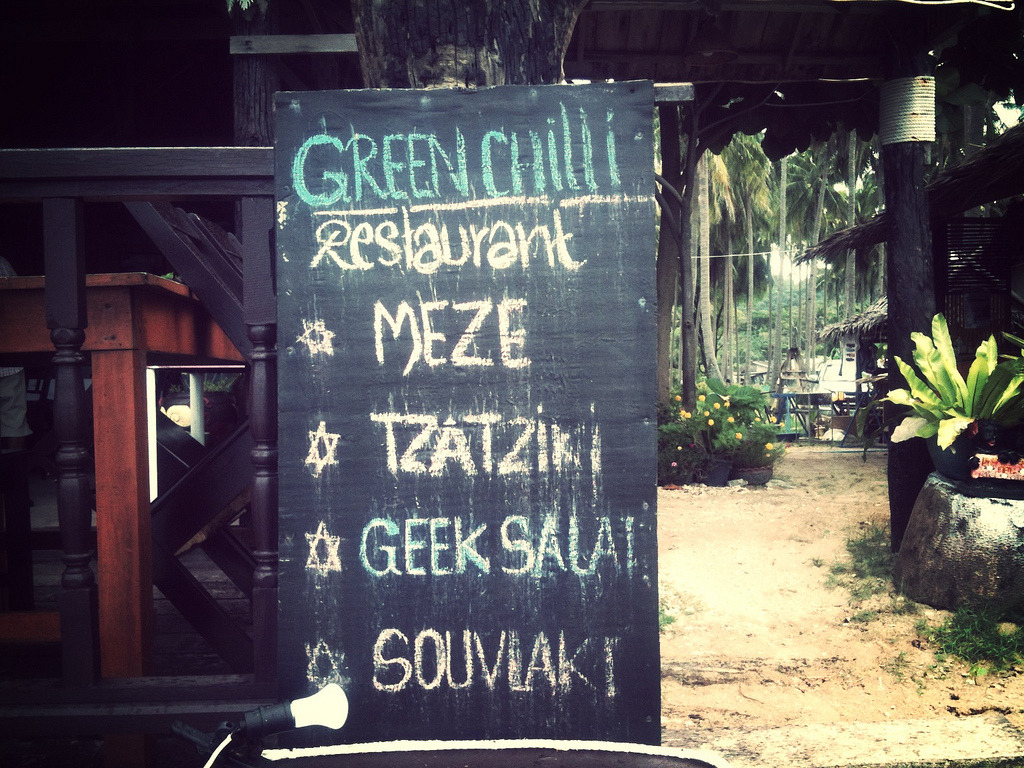 GREEN CHILLI
Restaurant
MEZE
TZATZIKI
GEEK SALAT
SOUVLAKI